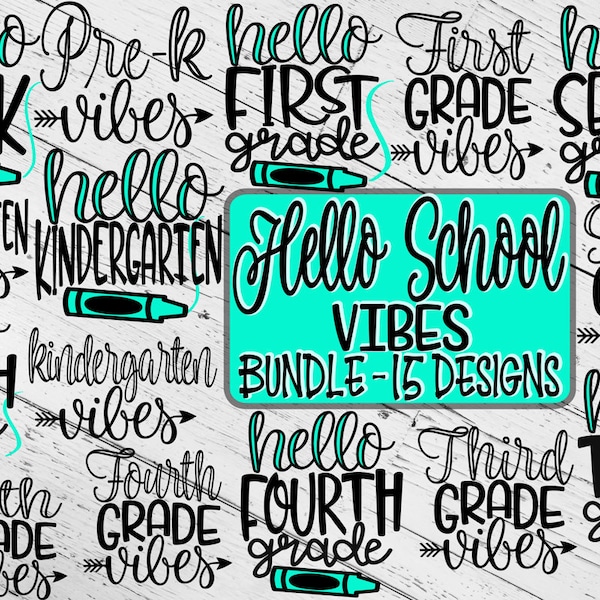 Pre-k
vibes
hello
FIRST
grade
First
GRADE
vibes
hello
KINDERGARTEN
Hello School
VIBES
BUNDLE-15 DESIGNS
kindergarten
vibes
Fourth
GRADE
vibes
hello
FOURTH
grade
Third
GRADE
vibes